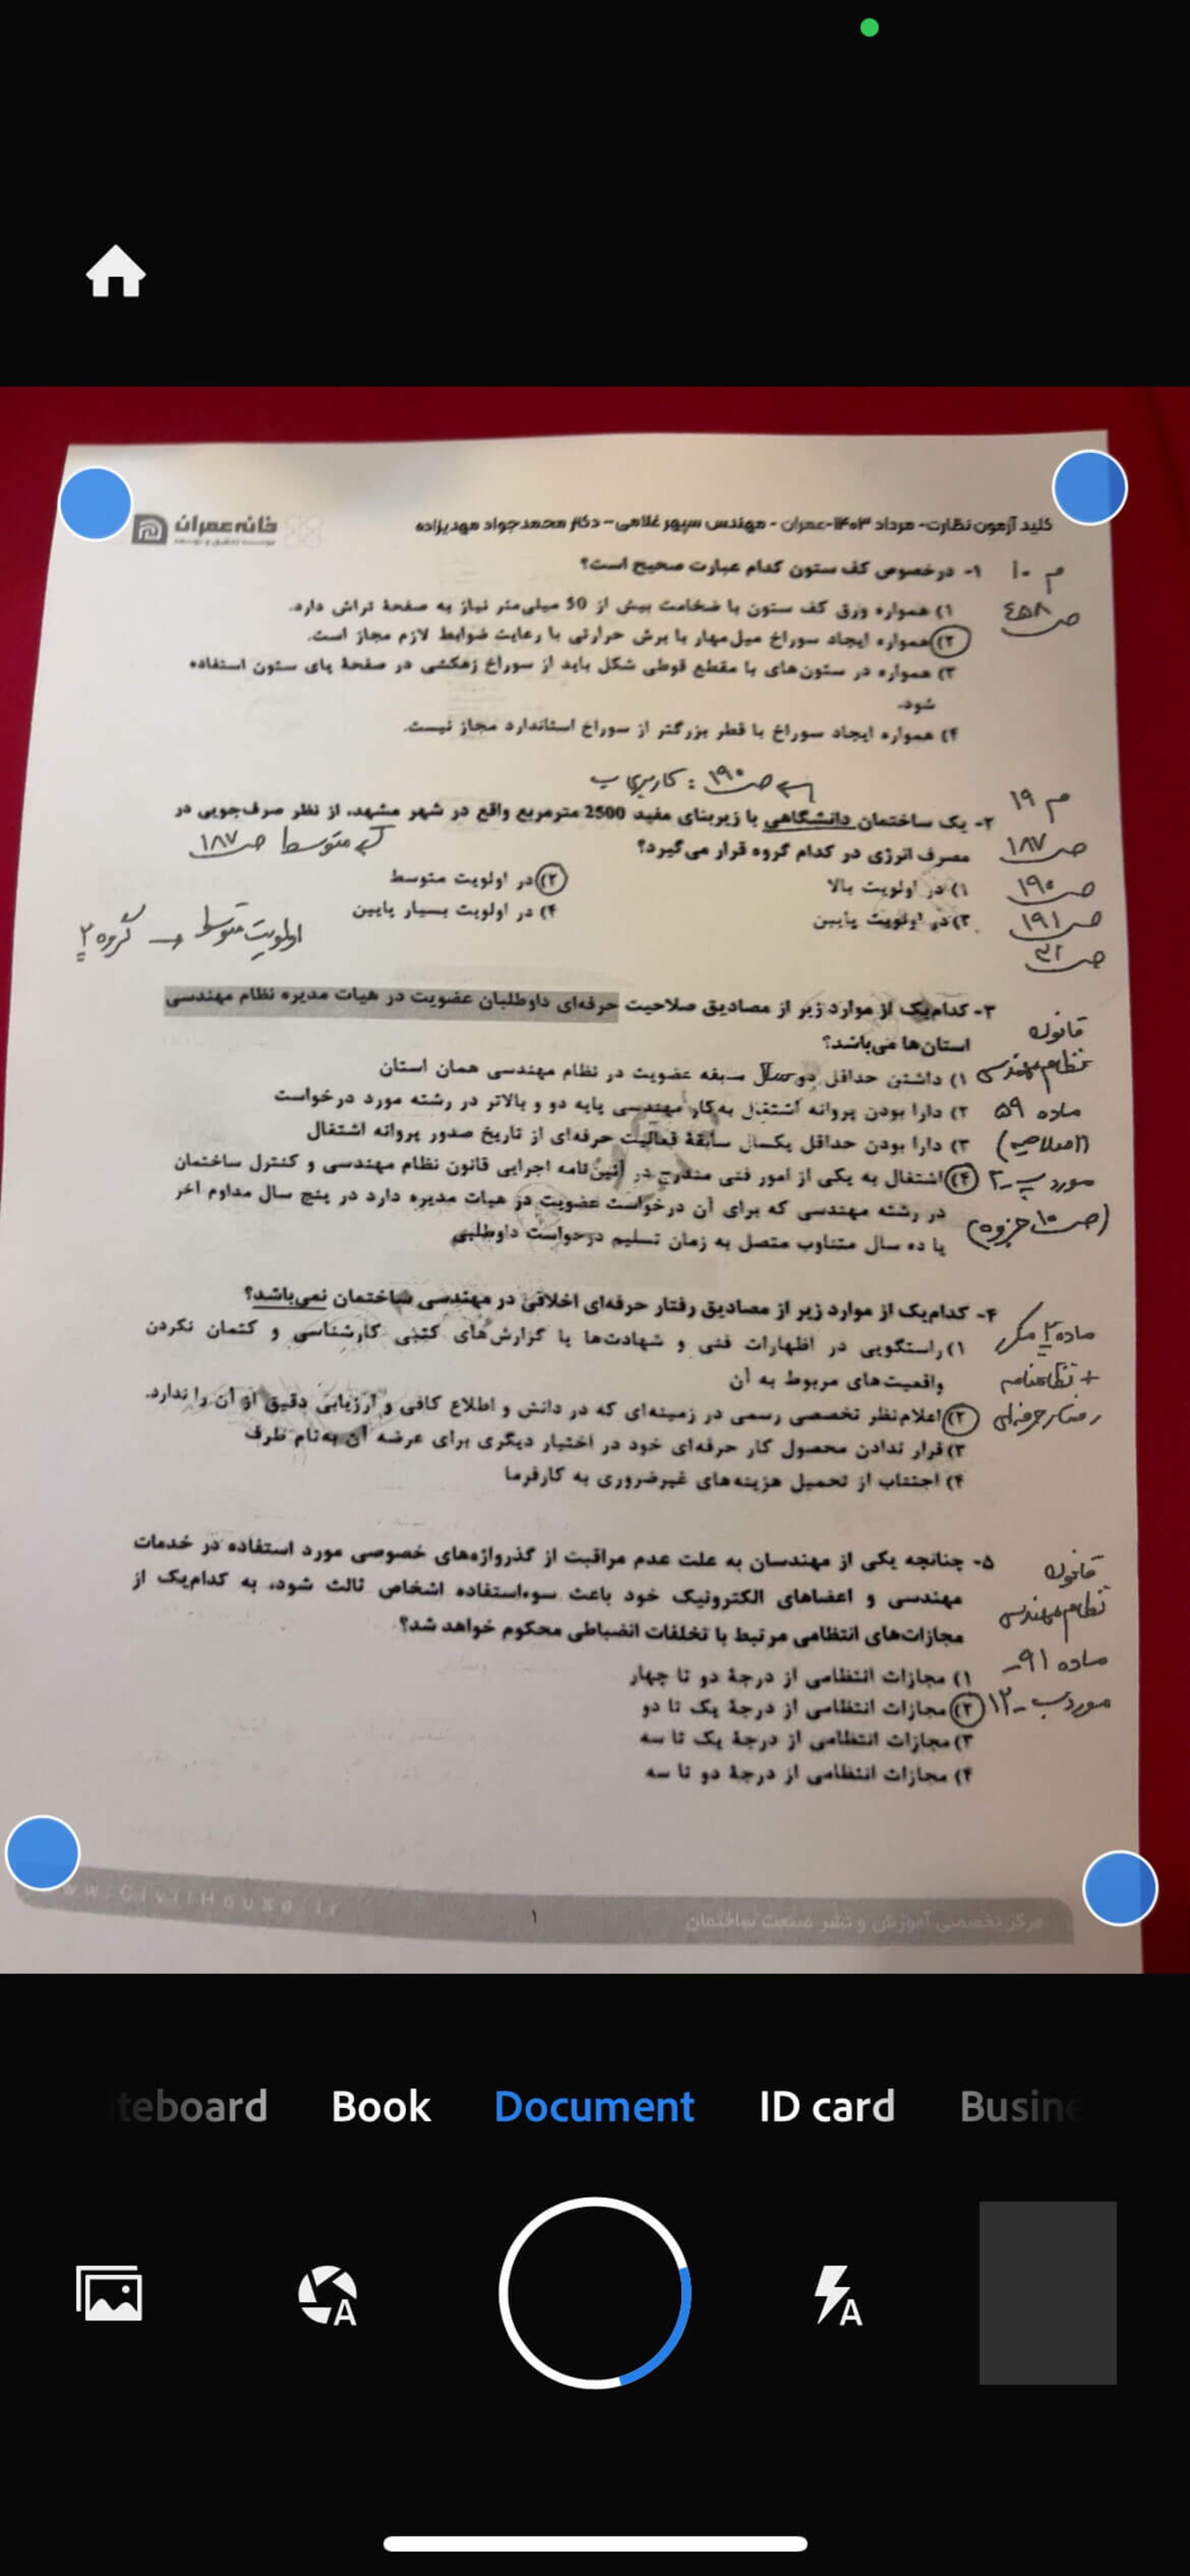 خانه عمران
موسسه تحقیق و توسعه
کلید آزمون نظارت- مرداد ۱۴۰۳-عمران - مهندس سپهر غلامی- دکتر محمدجواد مهدیزاده
م ۱۰
ص ۴۵۸
۱- درخصوص کف ستون کدام عبارت صحیح است؟
۱) همواره ورق کف ستون با ضخامت بیش از 50 میلی‌متر نیاز به صفحهٔ تراش دارد.
۲) همواره ایجاد سوراخ میل‌مهار با برش حرارتی با رعایت ضوابط لازم مجاز است.
۳) همواره در ستون‌های با مقطع قوطی شکل باید از سوراخ زهکشی در صفحهٔ پای ستون استفاده
شود.
۴) همواره ایجاد سوراخ با قطر بزرگتر از سوراخ استاندارد مجاز نیست.
ص ۱۹۰ : کاربری ب
م ۱۹
ص ۱۸۷
ص ۱۹۰
ص ۱۹۱
ص ۳۲
۲- یک ساختمان دانشگاهی با زیربنای مفید 2500 مترمربع واقع در شهر مشهد، از نظر صرف‌جویی در
مصرف انرژی در کدام گروه قرار می‌گیرد؟
متوسط ص ۱۸۷
۱) در اولویت بالا
۲) در اولویت متوسط
۳) در اولویت پایین
۴) در اولویت بسیار پایین
اولویت متوسط → گروه ۲
قانون
نظام مهندسی
ماده ۵۹
(اصلاحیه)
مورد ب-۲
(ص ۱۰ جزوه)
۳- کدام‌یک از موارد زیر از مصادیق صلاحیت حرفه‌ای داوطلبان عضویت در هیات مدیره نظام مهندسی
استان‌ها می‌باشد؟
۱) داشتن حداقل دو سال سابقه عضویت در نظام مهندسی همان استان
۲) دارا بودن پروانه اشتغال به‌کار مهندسی پایه دو و بالاتر در رشته مورد درخواست
۳) دارا بودن حداقل یکسال سابقهٔ فعالیت حرفه‌ای از تاریخ صدور پروانه اشتغال
۴) اشتغال به یکی از امور فنی مندرج در آئین‌نامه اجرایی قانون نظام مهندسی و کنترل ساختمان
در رشته مهندسی که برای آن درخواست عضویت در هیات مدیره دارد در پنج سال مداوم آخر
یا ده سال متناوب متصل به زمان تسلیم درخواست داوطلبی
ماده ۲ مکرر
+ نظامنامه
رفتار حرفه‌ای
۴- کدام‌یک از موارد زیر از مصادیق رفتار حرفه‌ای اخلاقی در مهندسی ساختمان نمی‌باشد؟
۱) راستگویی در اظهارات فنی و شهادت‌ها یا گزارش‌های کتبی کارشناسی و کتمان نکردن
واقعیت‌های مربوط به آن
۲) اعلام‌نظر تخصصی رسمی در زمینه‌ای که در دانش و اطلاع کافی و ارزیابی دقیق از آن را ندارد.
۳) قرار ندادن محصول کار حرفه‌ای خود در اختیار دیگری برای عرضه آن به‌نام طرف
۴) اجتناب از تحمیل هزینه‌های غیرضروری به کارفرما
قانون
نظام مهندسی
ماده ۹۱-
مورد ب-۱۲
۵- چنانچه یکی از مهندسان به علت عدم مراقبت از گذرواژه‌های خصوصی مورد استفاده در خدمات
مهندسی و اعضاهای الکترونیک خود باعث سوءاستفاده اشخاص ثالث شود، به کدام‌یک از
مجازات‌های انتظامی مرتبط با تخلفات انضباطی محکوم خواهد شد؟
۱) مجازات انتظامی از درجهٔ دو تا چهار
۲) مجازات انتظامی از درجهٔ یک تا دو
۳) مجازات انتظامی از درجهٔ یک تا سه
۴) مجازات انتظامی از درجهٔ دو تا سه
www.CivilHouse.ir
۱
مرکز تخصصی آموزش و نشر صنعت ساختمان
Book
Document
ID card